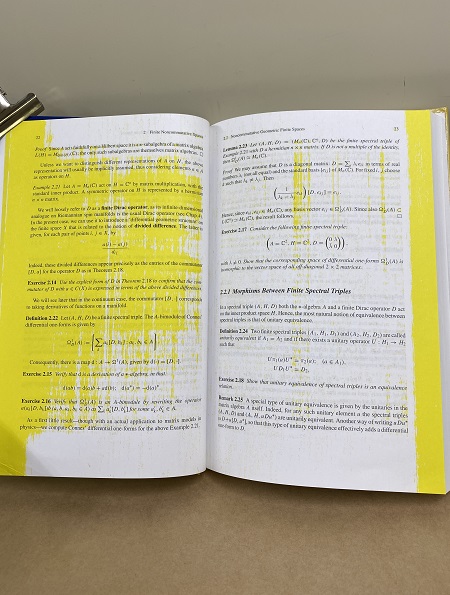 22 2 Finite Noncommutative Spaces
Proof Since A acts faithfully on a Hilbert space it is a *-subalgebra of a matrix algebra
L(H) = M_dim(H)(C); the only such subalgebras are themselves matrix algebras. □
Unless we want to distinguish different representations of A on H, the above
representation will usually be implicitly assumed, thus considering elements a ∈ A
as operators on H.
Example 2.21 Let A = M_n(C) act on H = C^n by matrix multiplication, with the
standard inner product. A symmetric operator on H is represented by a hermitian
n × n matrix.
We will loosely refer to D as a finite Dirac operator, as its infinite-dimensional
analogue on Riemannian spin manifolds is the usual Dirac operator (see Chap.
In the present case, we can use it to introduce a 'differential geometric structure' on
the finite space X that is related to the notion of divided difference. The latter is
given, for each pair of points i, j ∈ X, by
a(i) − a(j)
Indeed, these divided differences appear precisely as the entries of the commutator
[D, a] for the operator D as in Theorem 2.18.
Exercise 2.14 Use the explicit form of D in Theorem 2.18 to confirm that the com-
mutator of D with a ∈ C(X) is expressed in terms of the above divided differences.
We will see later that in the continuum case, the commutator [D, ·] corresponds
to taking derivatives of functions on a manifold.
Definition 2.22 Let (A, H, D) be a finite spectral triple. The A-bimodule of Connes'
differential one-forms is given by
Consequently, there is a map d : A → Ω¹_D(A), given by d(·) = [D, ·].
Exercise 2.15 Verify that d is a derivation of a *-algebra, in that:
d(ab) = d(a)b + ad(b); d(a*) = −d(a)*.
Exercise 2.16 Verify that Ω¹_D(A) is an A-bimodule by rewriting the operator
As a first little result—though with an actual application to matrix models in
physics—we compute Connes' differential one-forms for the above Example 2.21.
2.2 Noncommutative Geometric Finite Spaces 23
Lemma 2.23 Let (A, H, D) = (M_n(C), C^n, D) be the finite spectral triple of
Example 2.21 with D a hermitian n × n matrix. If D is not a multiple of the identity,
then Ω¹_D(A) ≃ M_n(C).
Proof We may assume that D is a diagonal matrix: D = Σ_i λ_i e_ii in terms of real
numbers λ_i (not all equal) and the standard basis {e_ij} of M_n(C). For fixed i, j choose
k such that λ_k ≠ λ_j. Then
the result follows. □
Exercise 2.17 Consider the following finite spectral triple:
with λ ≠ 0. Show that the corresponding space of differential one-forms Ω¹_D(A) is
isomorphic to the vector space of all off-diagonal 2 × 2 matrices.
2.2.1 Morphisms Between Finite Spectral Triples
In a spectral triple (A, H, D) both the *-algebra A and a finite Dirac operator D act
on the inner product space H. Hence, the most natural notion of equivalence between
spectral triples is that of unitary equivalence.
Definition 2.24 Two finite spectral triples (A₁, H₁, D₁) and (A₂, H₂, D₂) are called
unitarily equivalent if A₁ = A₂ and if there exists a unitary operator U : H₁ → H₂
such that
Uπ₁(a)U* = π₂(a); (a ∈ A₁),
UD₁U* = D₂.
Exercise 2.18 Show that unitary equivalence of spectral triples is an equivalence
relation.
Remark 2.25 A special type of unitary equivalence is given by the unitaries in the
matrix algebra A itself. Indeed, for any such unitary element u the spectral triples
(A, H, D) and (A, H, uDu*) are unitarily equivalent. Another way of writing uDu*
is D + u[D, u*], so that this type of unitary equivalence effectively adds a differential
one-form to D.